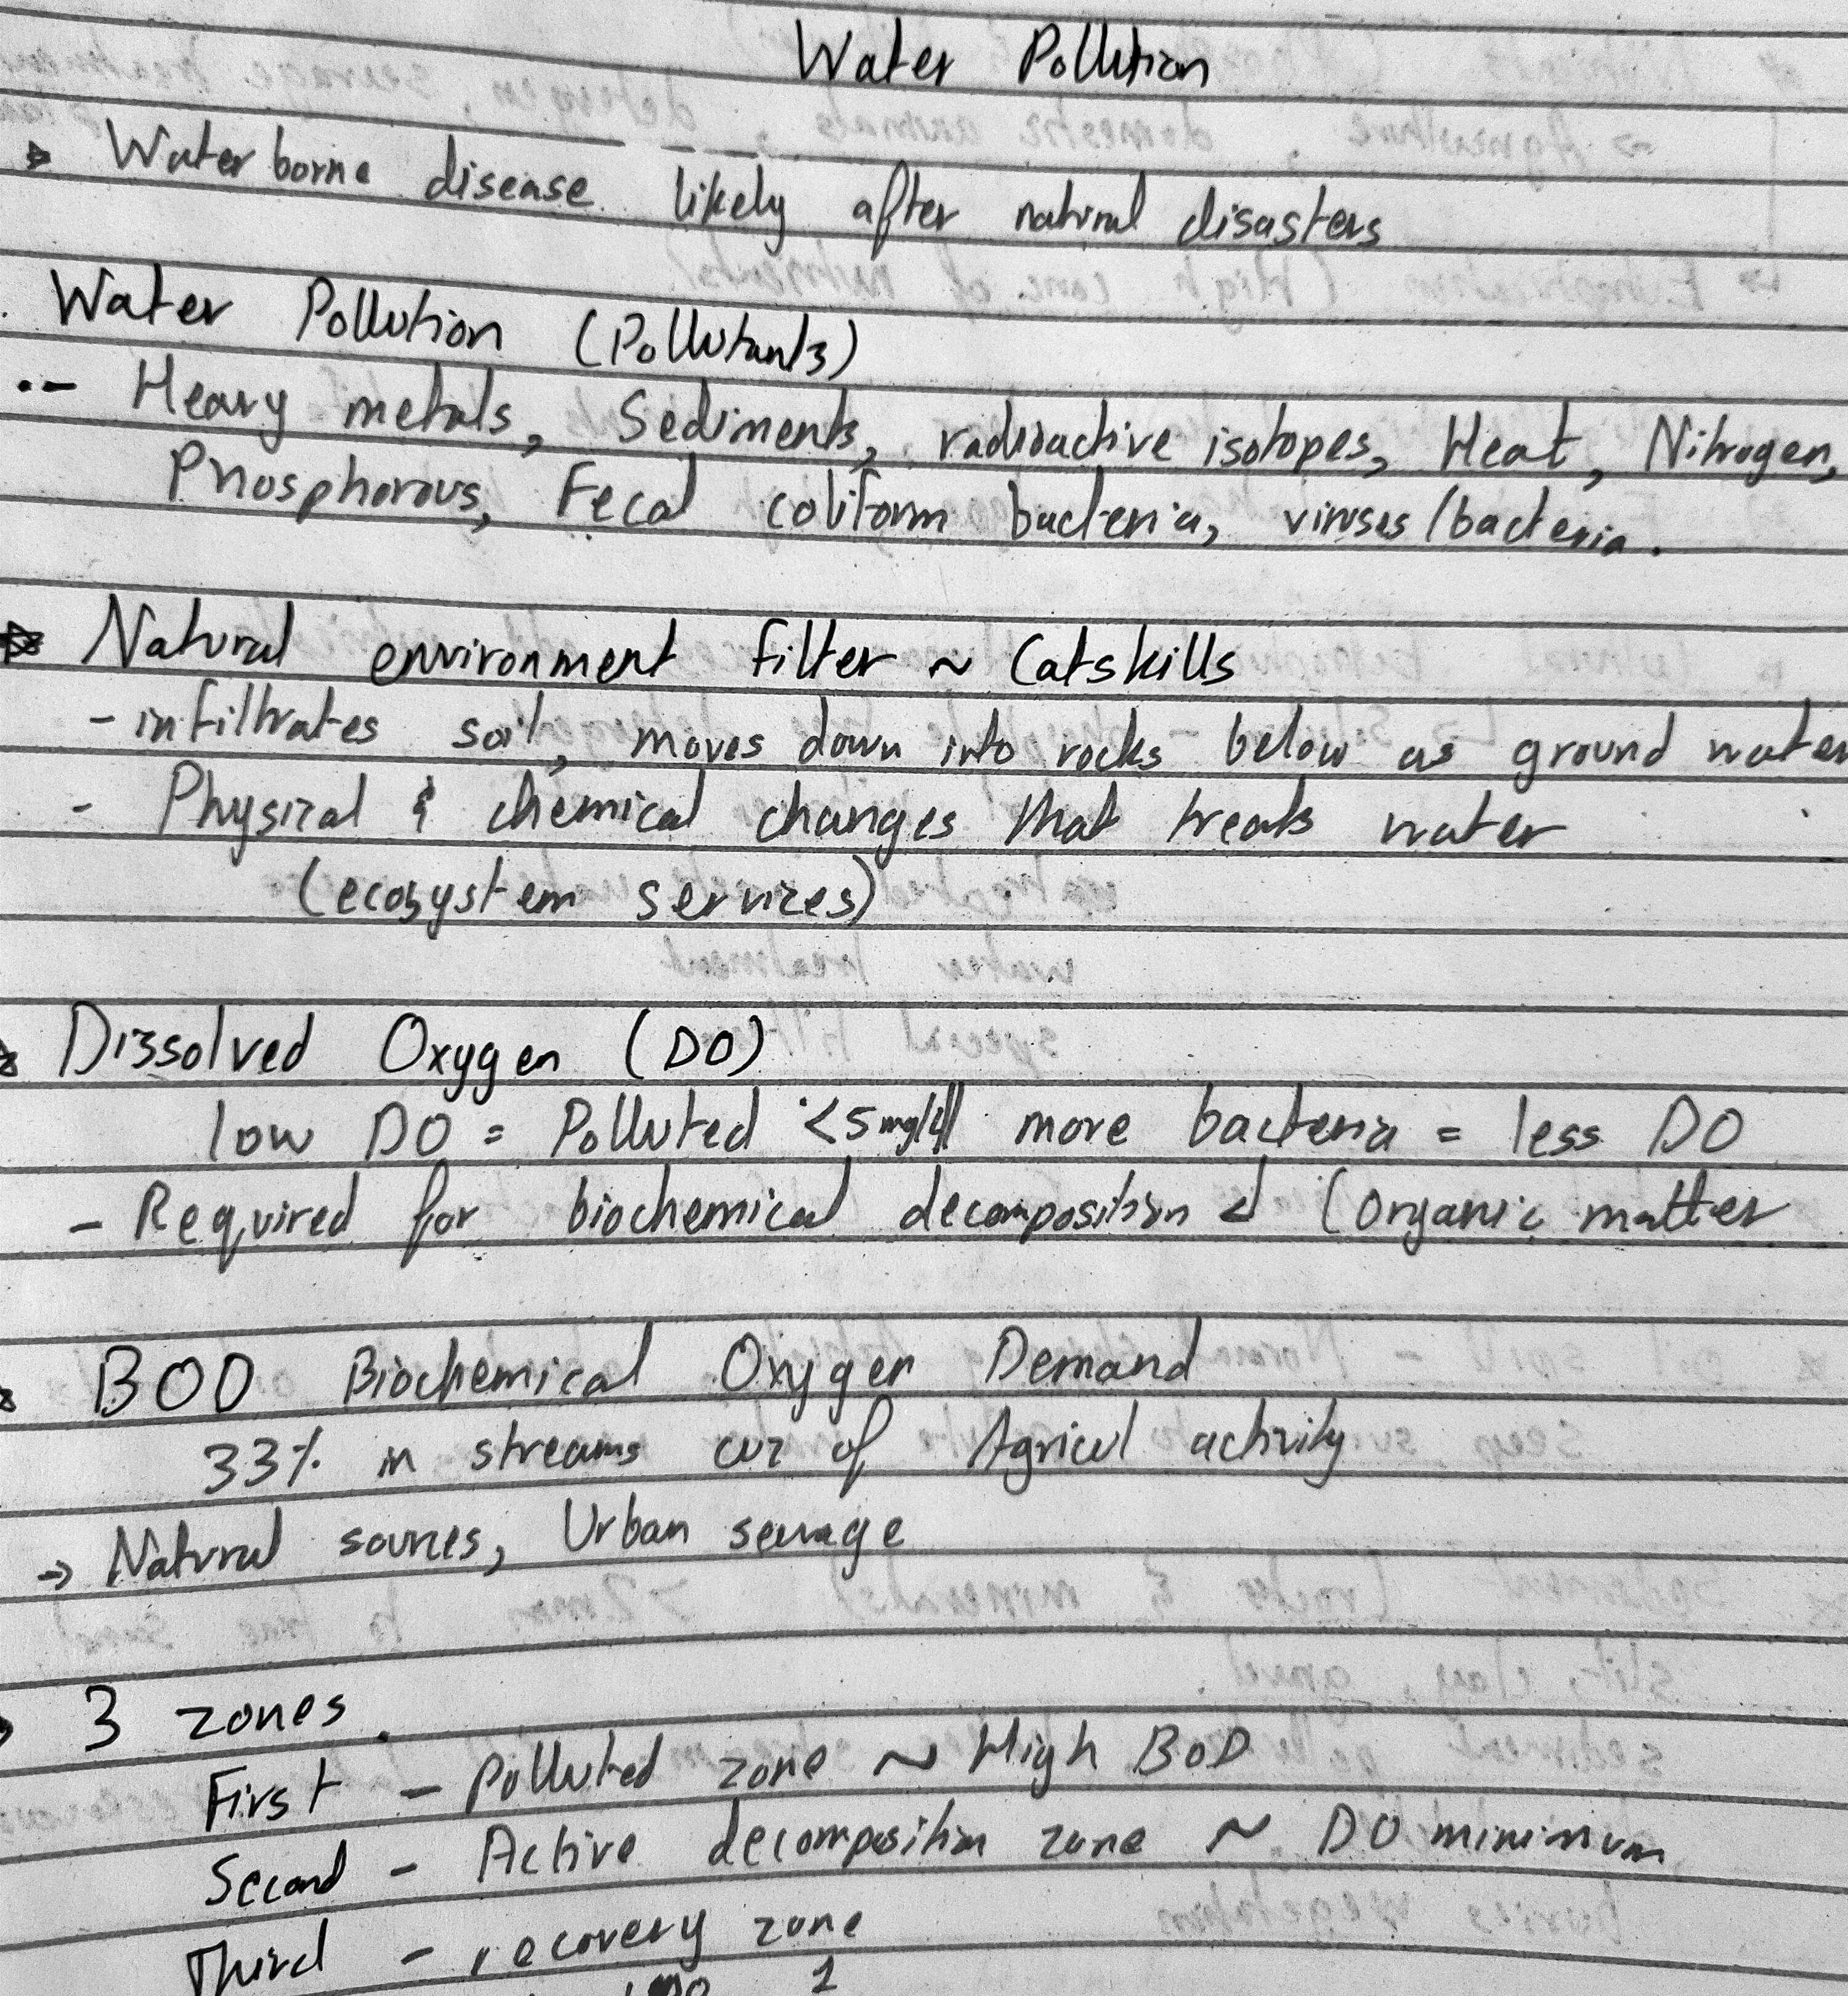 Water Pollution
Water borne disease likely after natural disasters
Water Pollution (Pollutants)
Heavy metals, Sediments, radioactive isotopes, Heat, Nitrogen,
Phosphorous, Fecal coliform bacteria, viruses/bacteria.
Natural environment filter ~ Catskills
- infiltrates soil, moves down into rocks below as ground water
- Physical & chemical changes that treats water
(ecosystem services)
Dissolved Oxygen (DO)
low DO = Polluted <5mg/l more bacteria = less DO
- Required for biochemical decomposition (organic matter
BOD Biochemical Oxygen Demand
33% in streams cuz of Agricul activity
→ Natural sources, Urban sewage
3 zones
First - polluted zone ~ High BOD
Second - Active decomposition zone ~ DO minimum
Third - recovery zone